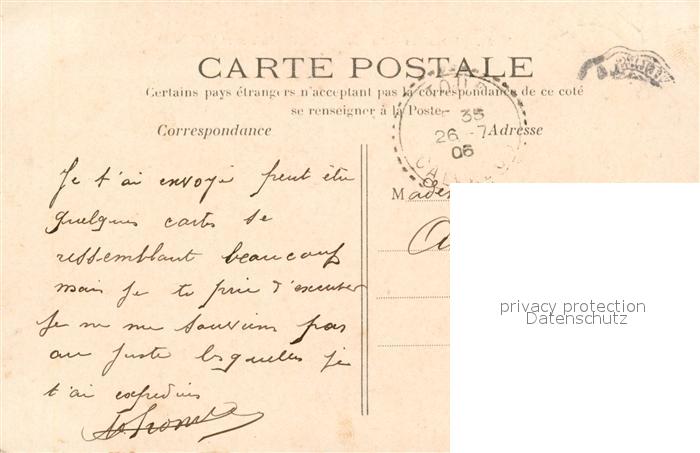 CARTE POSTALE
Certains pays étrangers n'acceptant pas la correspondance de ce coté
se renseigner à la Poste
Correspondance
Adresse
35
26 -7
06
Je t'ai envoyé peut être
quelques cartes se
ressemblant beaucoup
mais je te prie d'excuser
je ne me souviens pas
au juste lesquelles je
t'ai expédiées
M
privacy protection
Datenschutz